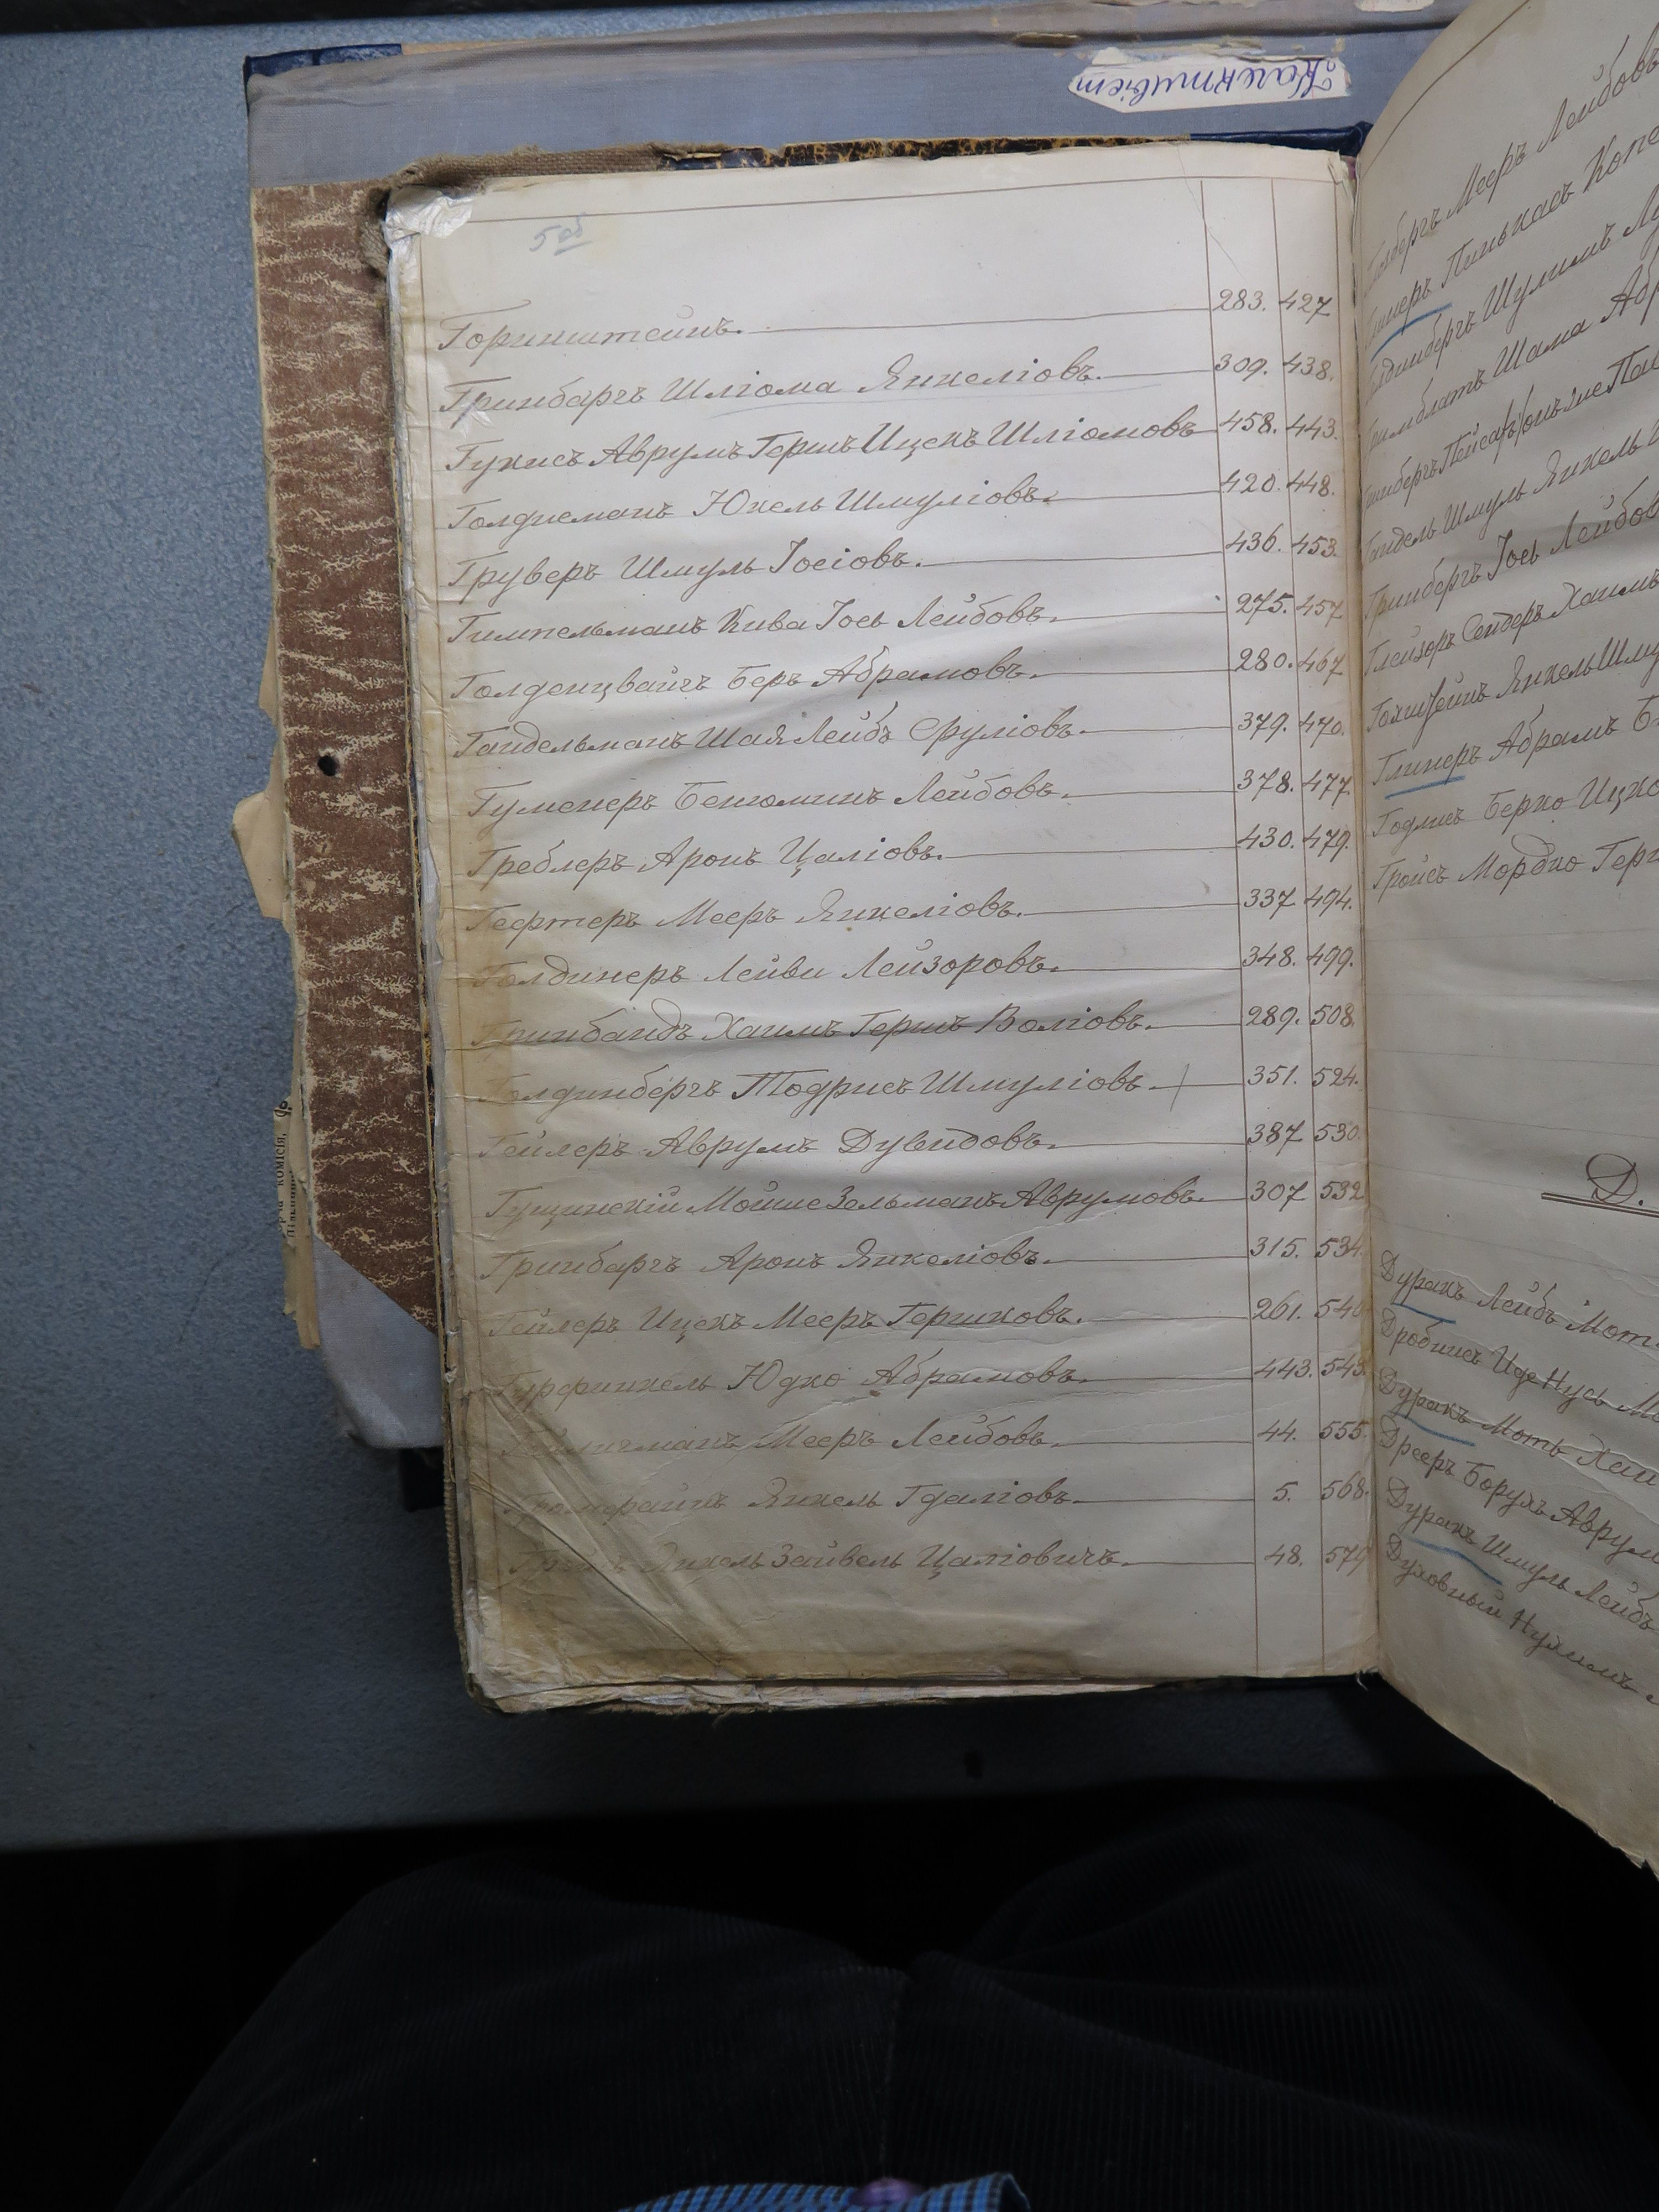 5об
Горинштейнъ. 283. 427
Гринбаргъ Шліома Янкеліовъ. 309. 438.
Гукисъ Аврумъ Гершъ Ицекъ Шліомовъ 458. 443.
Голдисманъ Юкель Шмуліовъ. 420. 448.
Груверъ Шмуль Іосіовъ. 436. 453.
Гимпельманъ Кива Іось Лейбовъ. 275. 457
Голденцвайгъ Беръ Абрамовъ. 280. 467
Гандельманъ Шая Лейбъ Сруліовъ. 379. 470.
Гуменеръ Беніоминъ Лейбовъ. 378. 477
Греблеръ Аронъ Цаліовъ. 430. 479.
Гефтеръ Мееръ Янкеліовъ. 337 494.
Голдинеръ Лейви Лейзоровъ. 348. 499.
Гринбандъ Хаимъ Гершъ Воліовъ. 289. 508.
Голдинбергъ Тодрисъ Шмуліовъ. 351. 524.
Гейлеръ Аврумъ Дувидовъ. 387 530.
Гущинскій Мойше Зельманъ Аврумовъ. 307 532
Гринбаргъ Аронъ Янкеліовъ. 315. 534.
Гейлеръ Ицекъ Мееръ Гершковъ. 261. 540
Гурфинкель Юдко Абрамовъ. 443. 543.
Мееръ Лейбовъ. 44. 555.
Янкель Гдаліовъ. 5. 568.
Янкель Зайвель Цаліовичъ. 48. 579
Мееръ Лейбовъ
Пинькасъ Копе
Шулимъ
Шама Абр
Шмуль Янкель
Гринбергъ Іось Лейбов
Глейзоръ Сендеръ Хаимъ
Янкель Шму
Глинеръ Абрамъ Б
Годлисъ Берко Ицко
Гройсъ Мордко Герш
Д.
Дуракъ Лейбъ Мот
Дробнисъ Иде Нусь М
Дуракъ Моть Хаи
Дрееръ Борухъ Аврум
Дуракъ Шмуль Лейбъ
Духовный Нухимъ